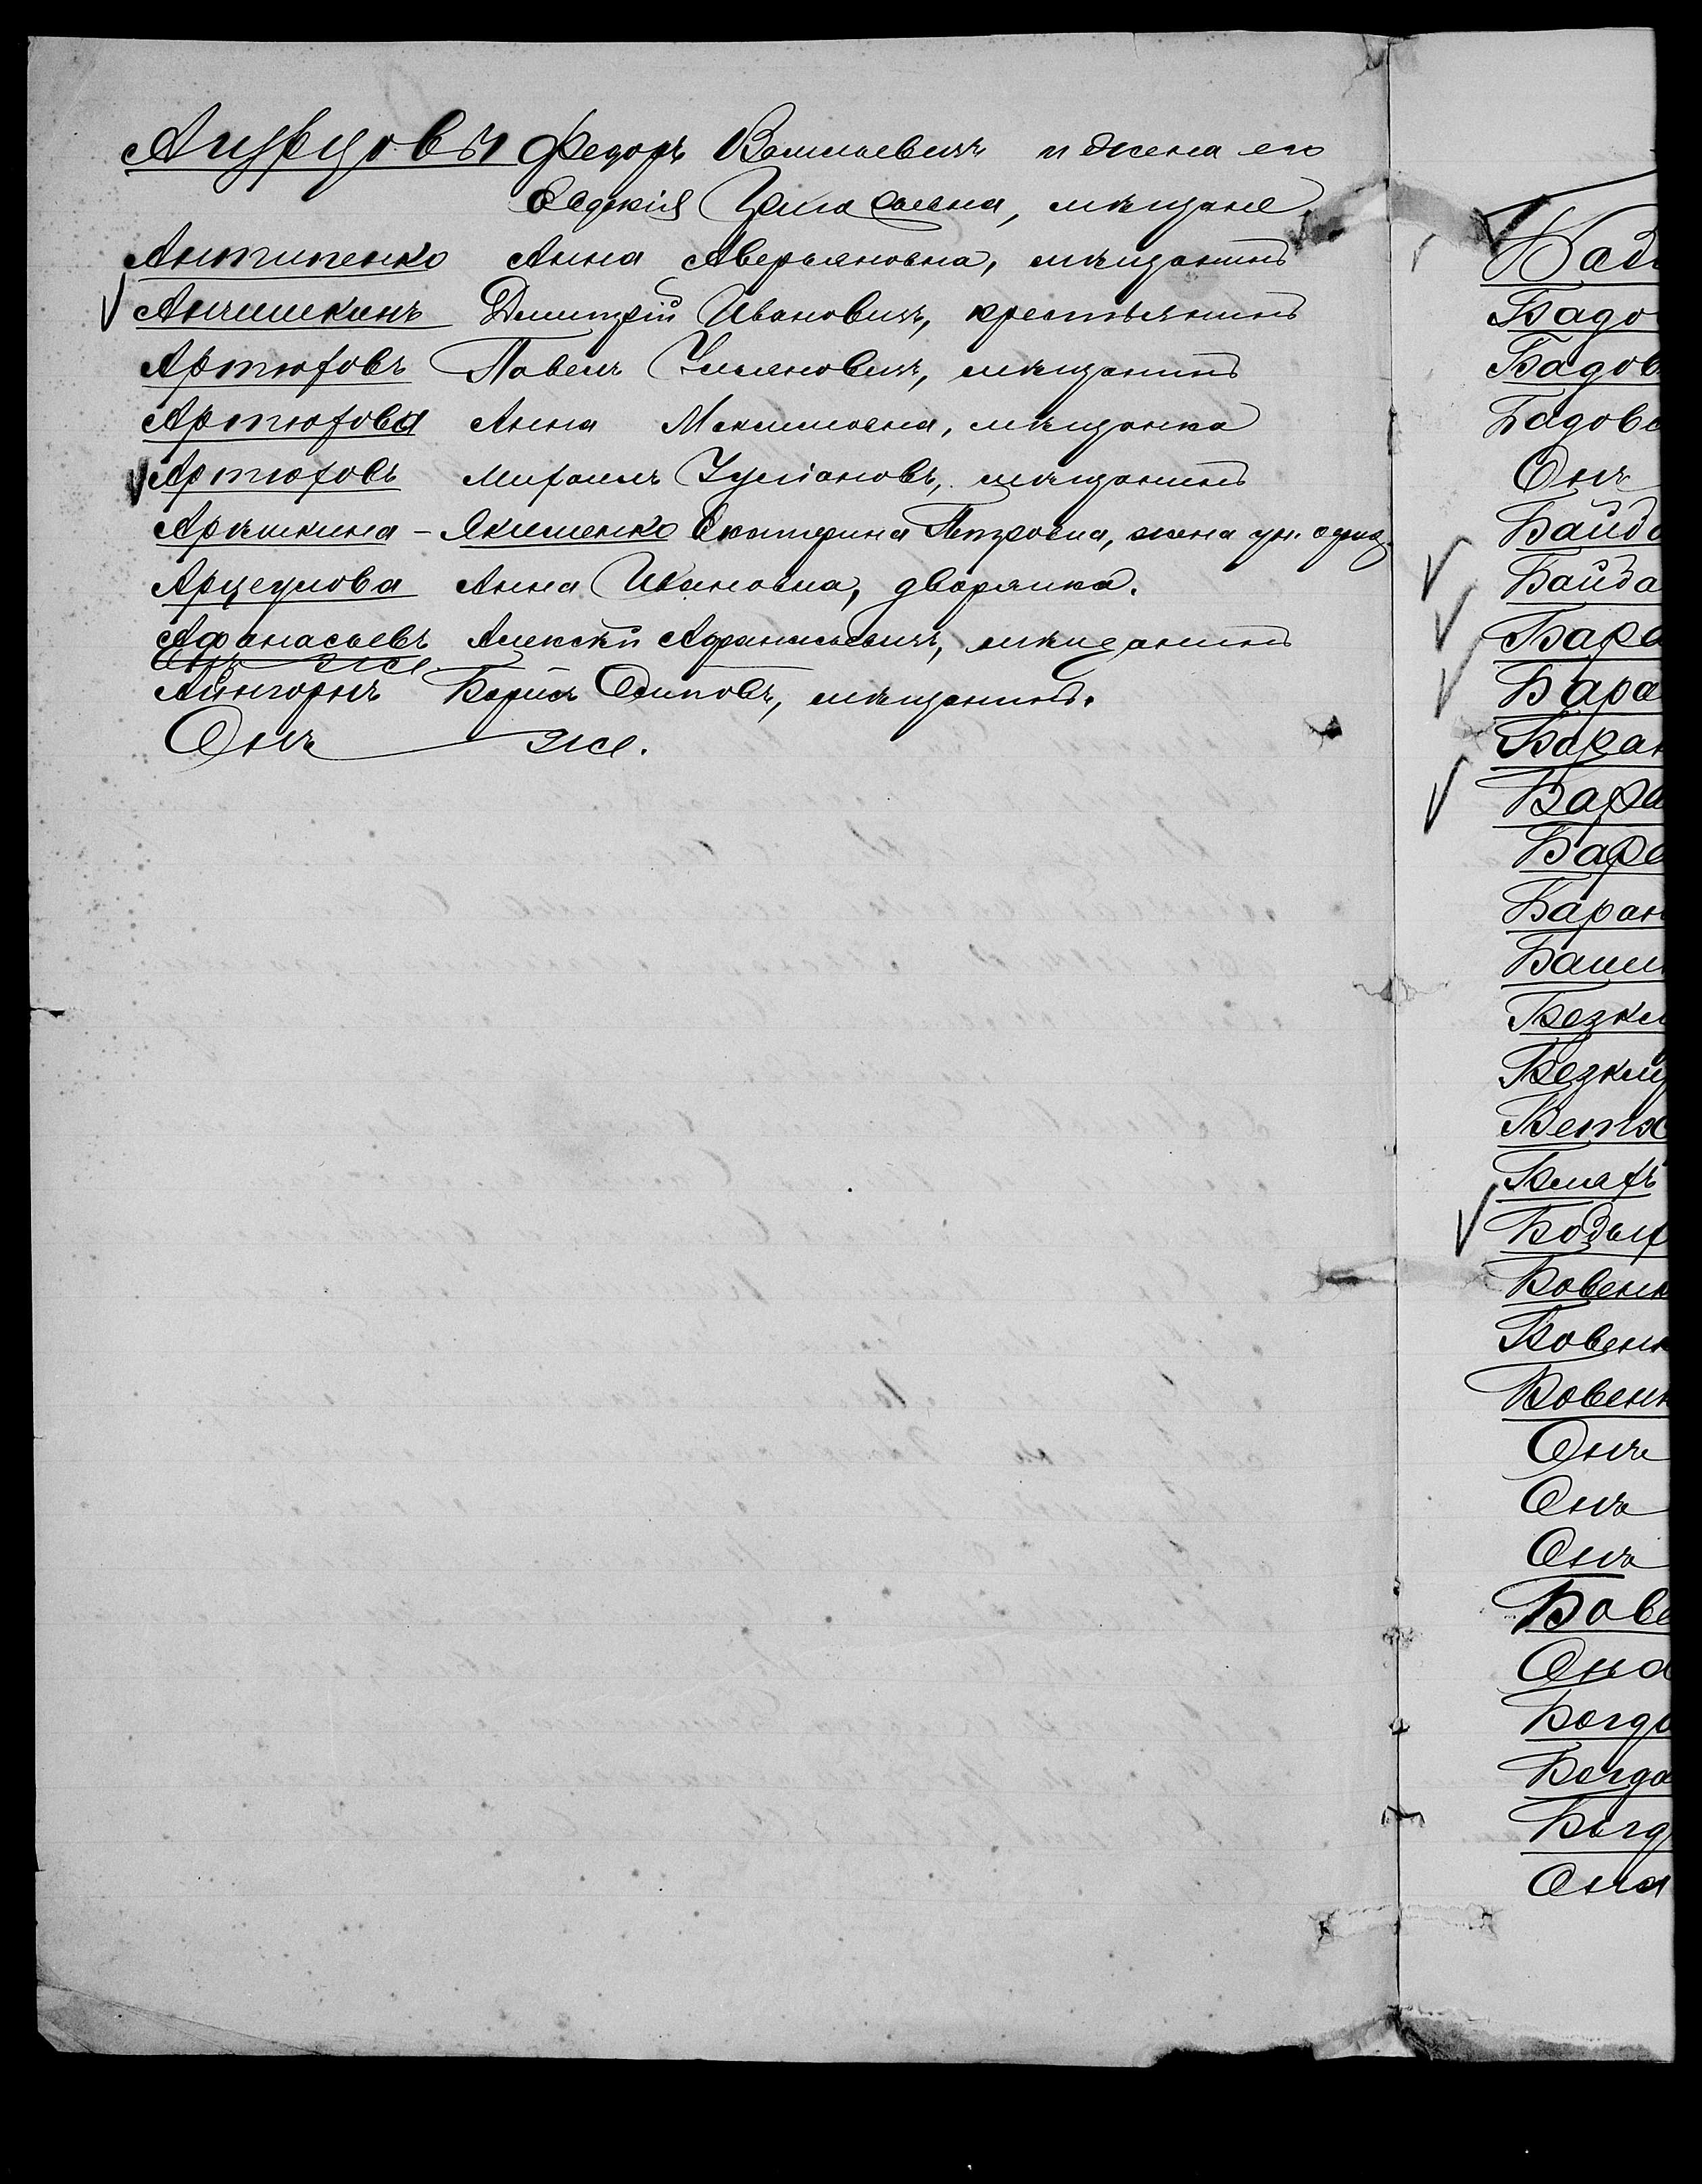 Анурьевы Федоръ Васильевичъ и жена его
Евдокія Герасимовна, мѣщане
Антипенко Анна Аверьяновна, мѣщанинъ
Анчишкинъ Дмитрій Ивановичъ, крестьянинъ
Артюховъ Павелъ Ульяновичъ, мѣщанинъ
Артюхова Анна Максимовна, мѣщанка
Артюховъ Михаилъ Іуліановъ, мѣщанинъ
Арешкина - Якименко Екатерина Петровна, жена
Арцеулова Анна Ивановна, дворянка.
Афанасьевъ Алексѣй Афанасьевичъ, мѣщанинъ
Онъ же.
Айнгорнъ Борисъ Осиповъ, мѣщанинъ.
Онъ же.
Бадо
Бадов
Бадова
Онъ
Байда
Байда
Бара
Бара
Баран
Бара
Бара
Баран
Башк
Безкл
Безклу
Ветх
Блахъ
Бодыр
Бовенк
Бовенк
Бовенк
Онъ
Онъ
Онъ
Бове
Она
Богда
Богда
Богд
Она